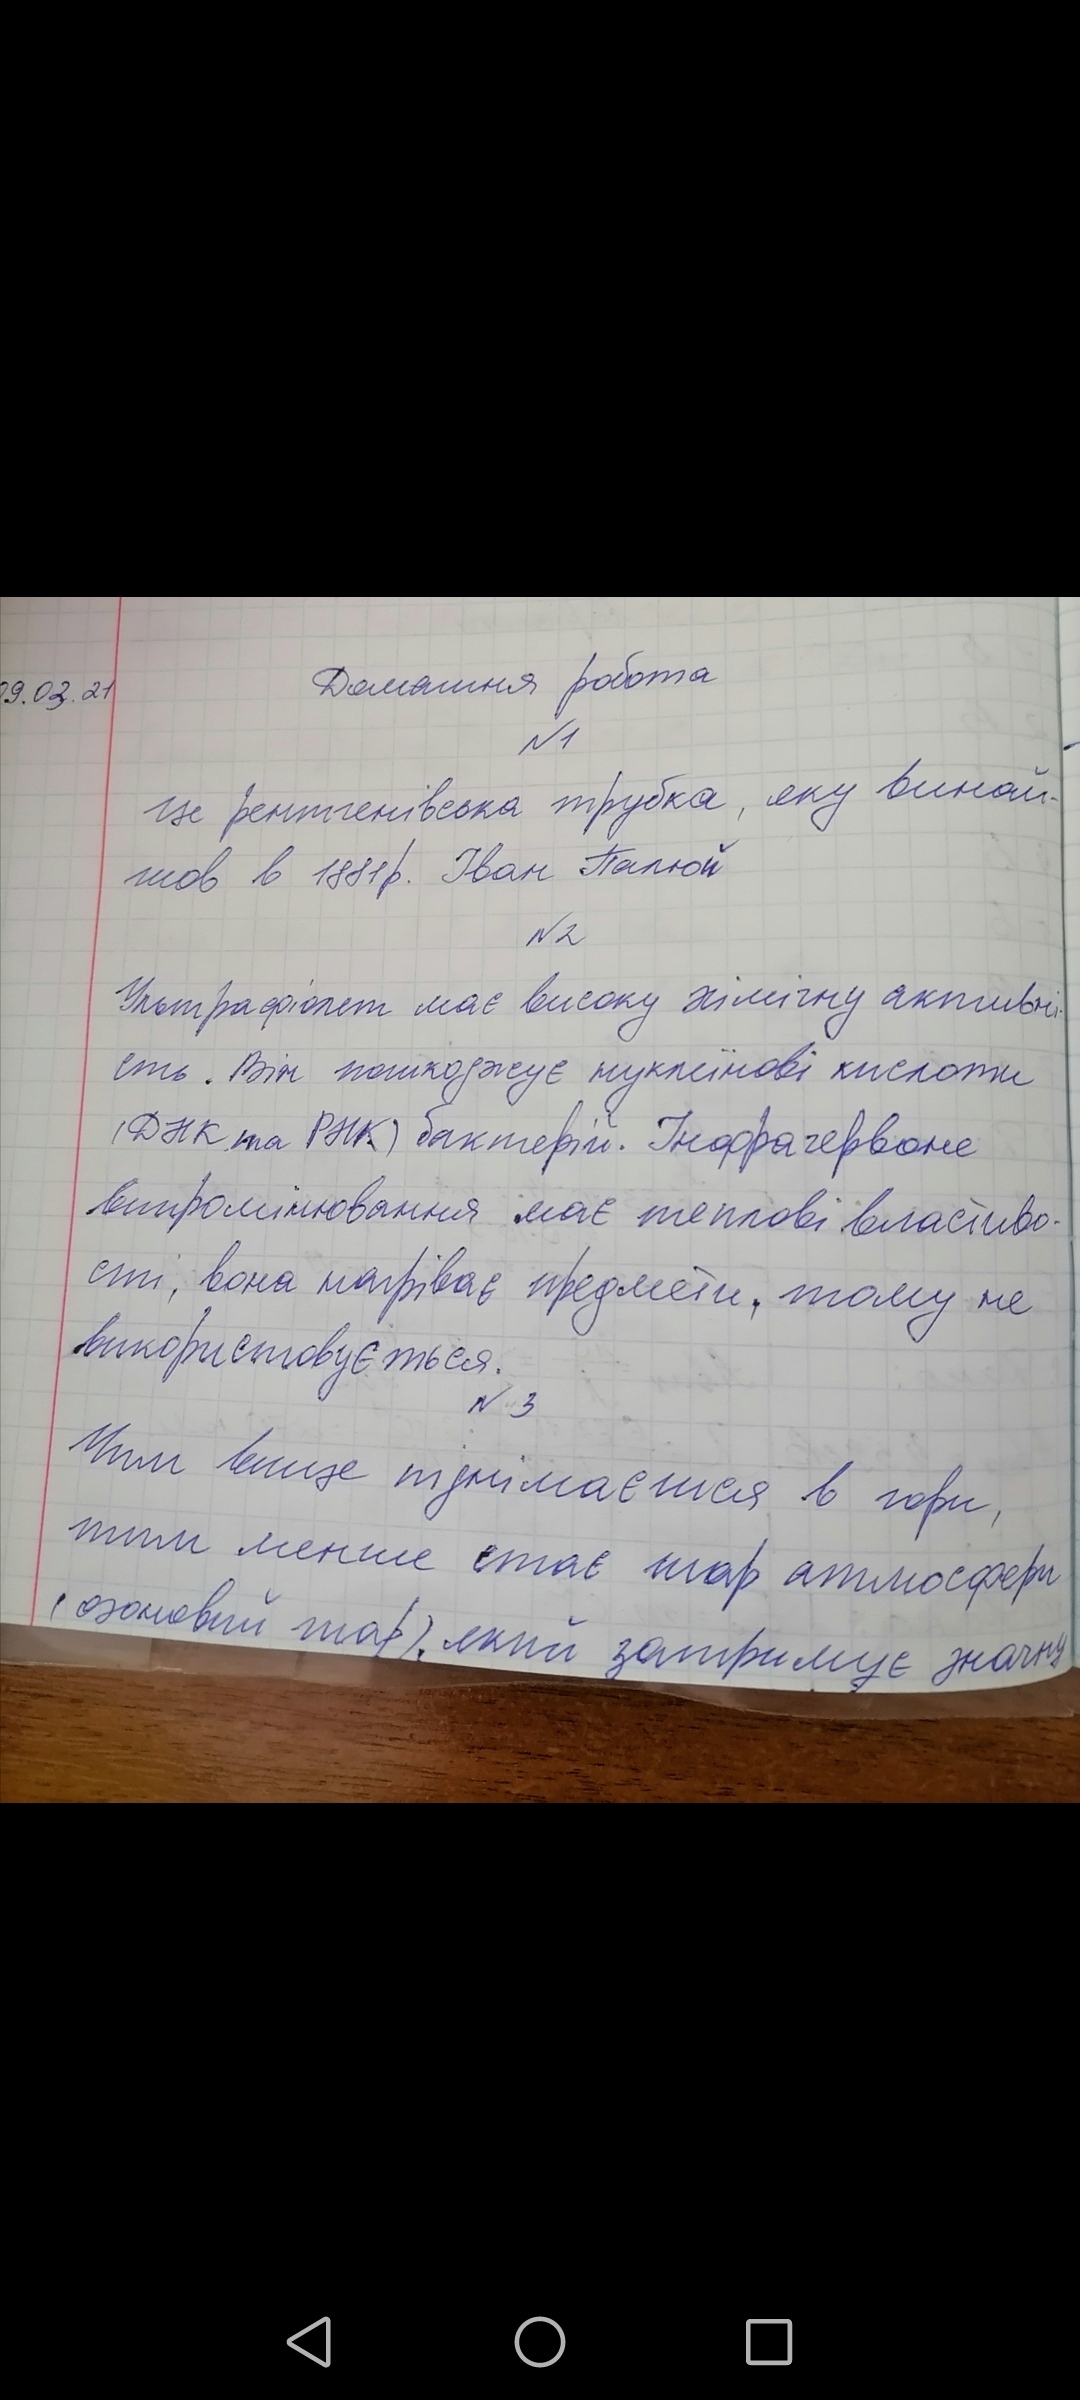 09.03.21
Домашня робота
№1
Це рентгенівська трубка, яку винай-
шов в 1881р. Іван Палюй
№2
Ультрафіолет має високу хімічну активні-
сть. Він пошкоджує нуклеїнові кислоти
(ДНК та РНК) бактерій. Інфрачервоне
випромінювання має теплові властиво-
сті, вона нагріває предмети, тому не
використовується.
№3
Чим вище піднімаєшся в гори,
тим менше стає шар атмосфери
(озоновий шар), який затримує значну